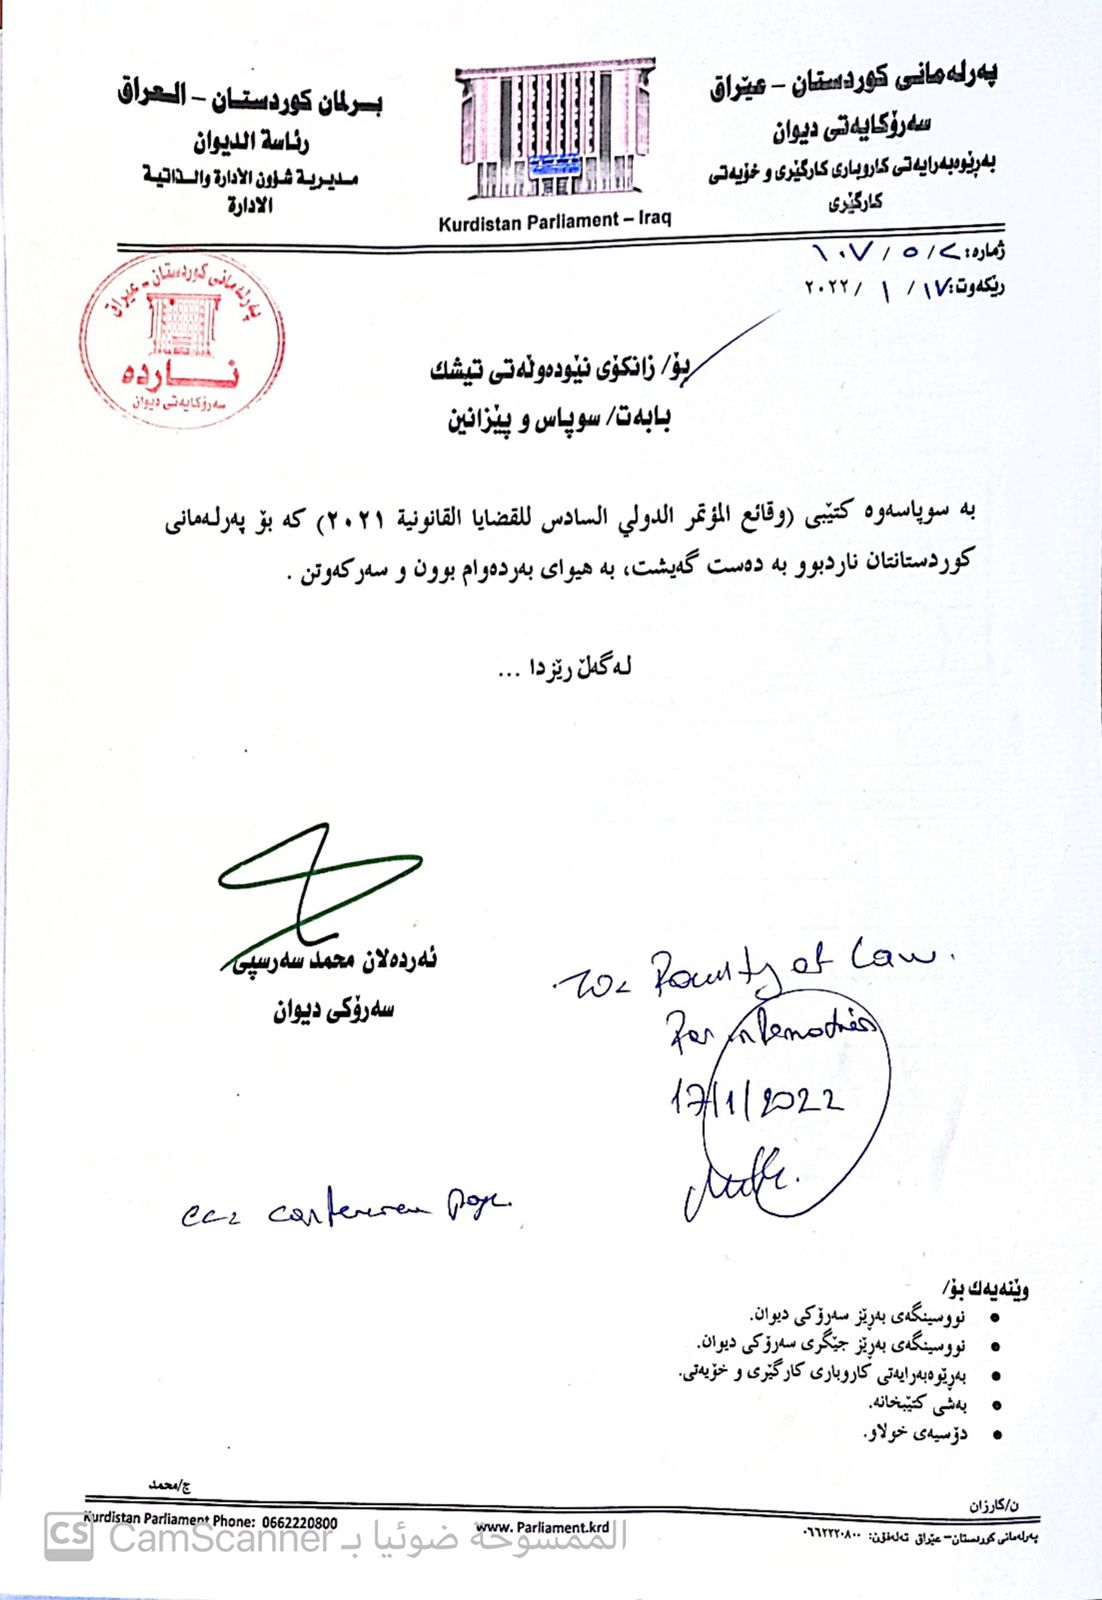 پەرلەمانی کوردستان – عێراق
سەرۆکایەتی دیوان
بەڕێوەبەرایەتی کاروباری کارگێڕی و خۆیەتی
کارگێڕی
Kurdistan Parliament – Iraq
بـرلمان كوردستـان – الـعراق
رئاسة الديوان
مـديرية شؤون الادارة والـذاتية
الادارة
ژمارە: ٢ / ٥ / ١٠٧
ڕێکەوت: ١٧ / ١ / ٢٠٢٢
پەرلەمانی کوردستان – عێراق
نــاردە
سەرۆکایەتی دیوان
بۆ/ زانکۆی نێودەوڵەتی تیشك
بابەت/ سوپاس و پێزانین
بە سوپاسەوە کتێبی (وقائع المؤتمر الدولي السادس للقضايا القانونية ٢٠٢١) کە بۆ پەرلەمانی
کوردستانتان ناردبوو بە دەست گەیشت، بە هیوای بەردەوام بوون و سەرکەوتن .
لەگەڵ ڕێزدا ...
ئەردەلان محمد سەرسپی
سەرۆکی دیوان
To: Faculty of Law.
For information
17/1/2022
cc: conference page.
وێنەیەك بۆ/
• نووسینگەی بەڕێز سەرۆکی دیوان.
• نووسینگەی بەڕێز جێگری سەرۆکی دیوان.
• بەڕێوەبەرایەتی کاروباری کارگێڕی و خۆیەتی.
• بەشی کتێبخانە.
• دۆسیەی خولاو.
ن/کارزان
ج/محمد
پەرلەمانی کوردستان– عێراق تەلەفۆن: ٠٦٦٢٢٢٠٨٠٠
www. Parliament.krd
Kurdistan Parliament Phone: 0662220800
CS CamScanner الممسوحة ضوئيا بـ